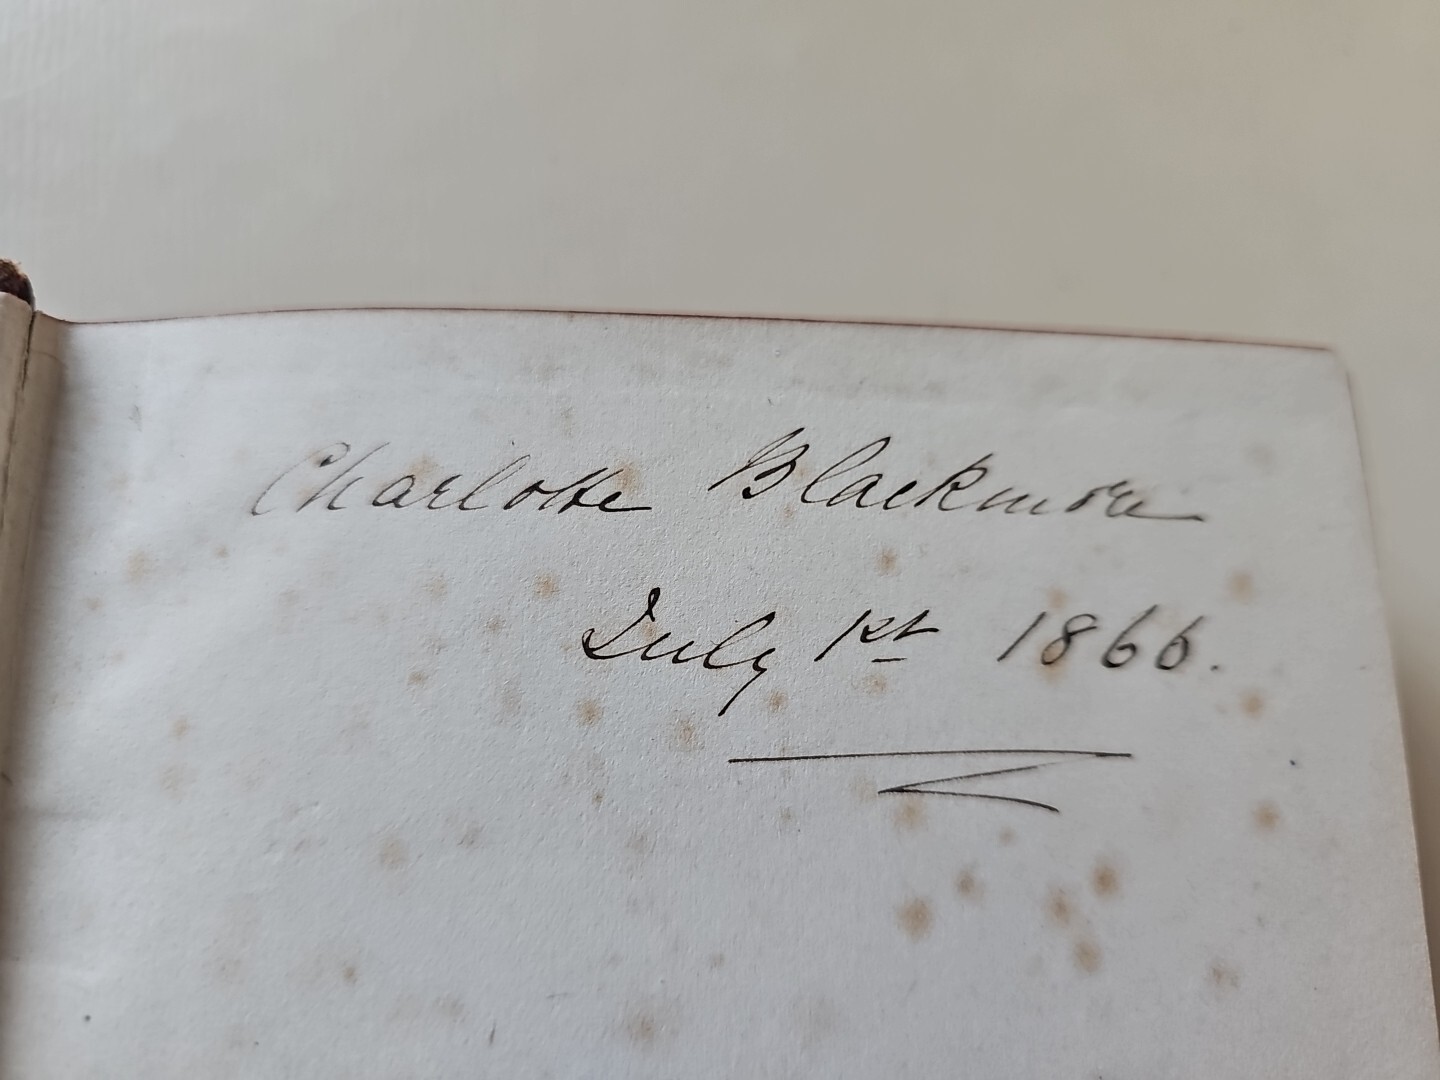 Charlotte Blackmore
July 1st 1866.